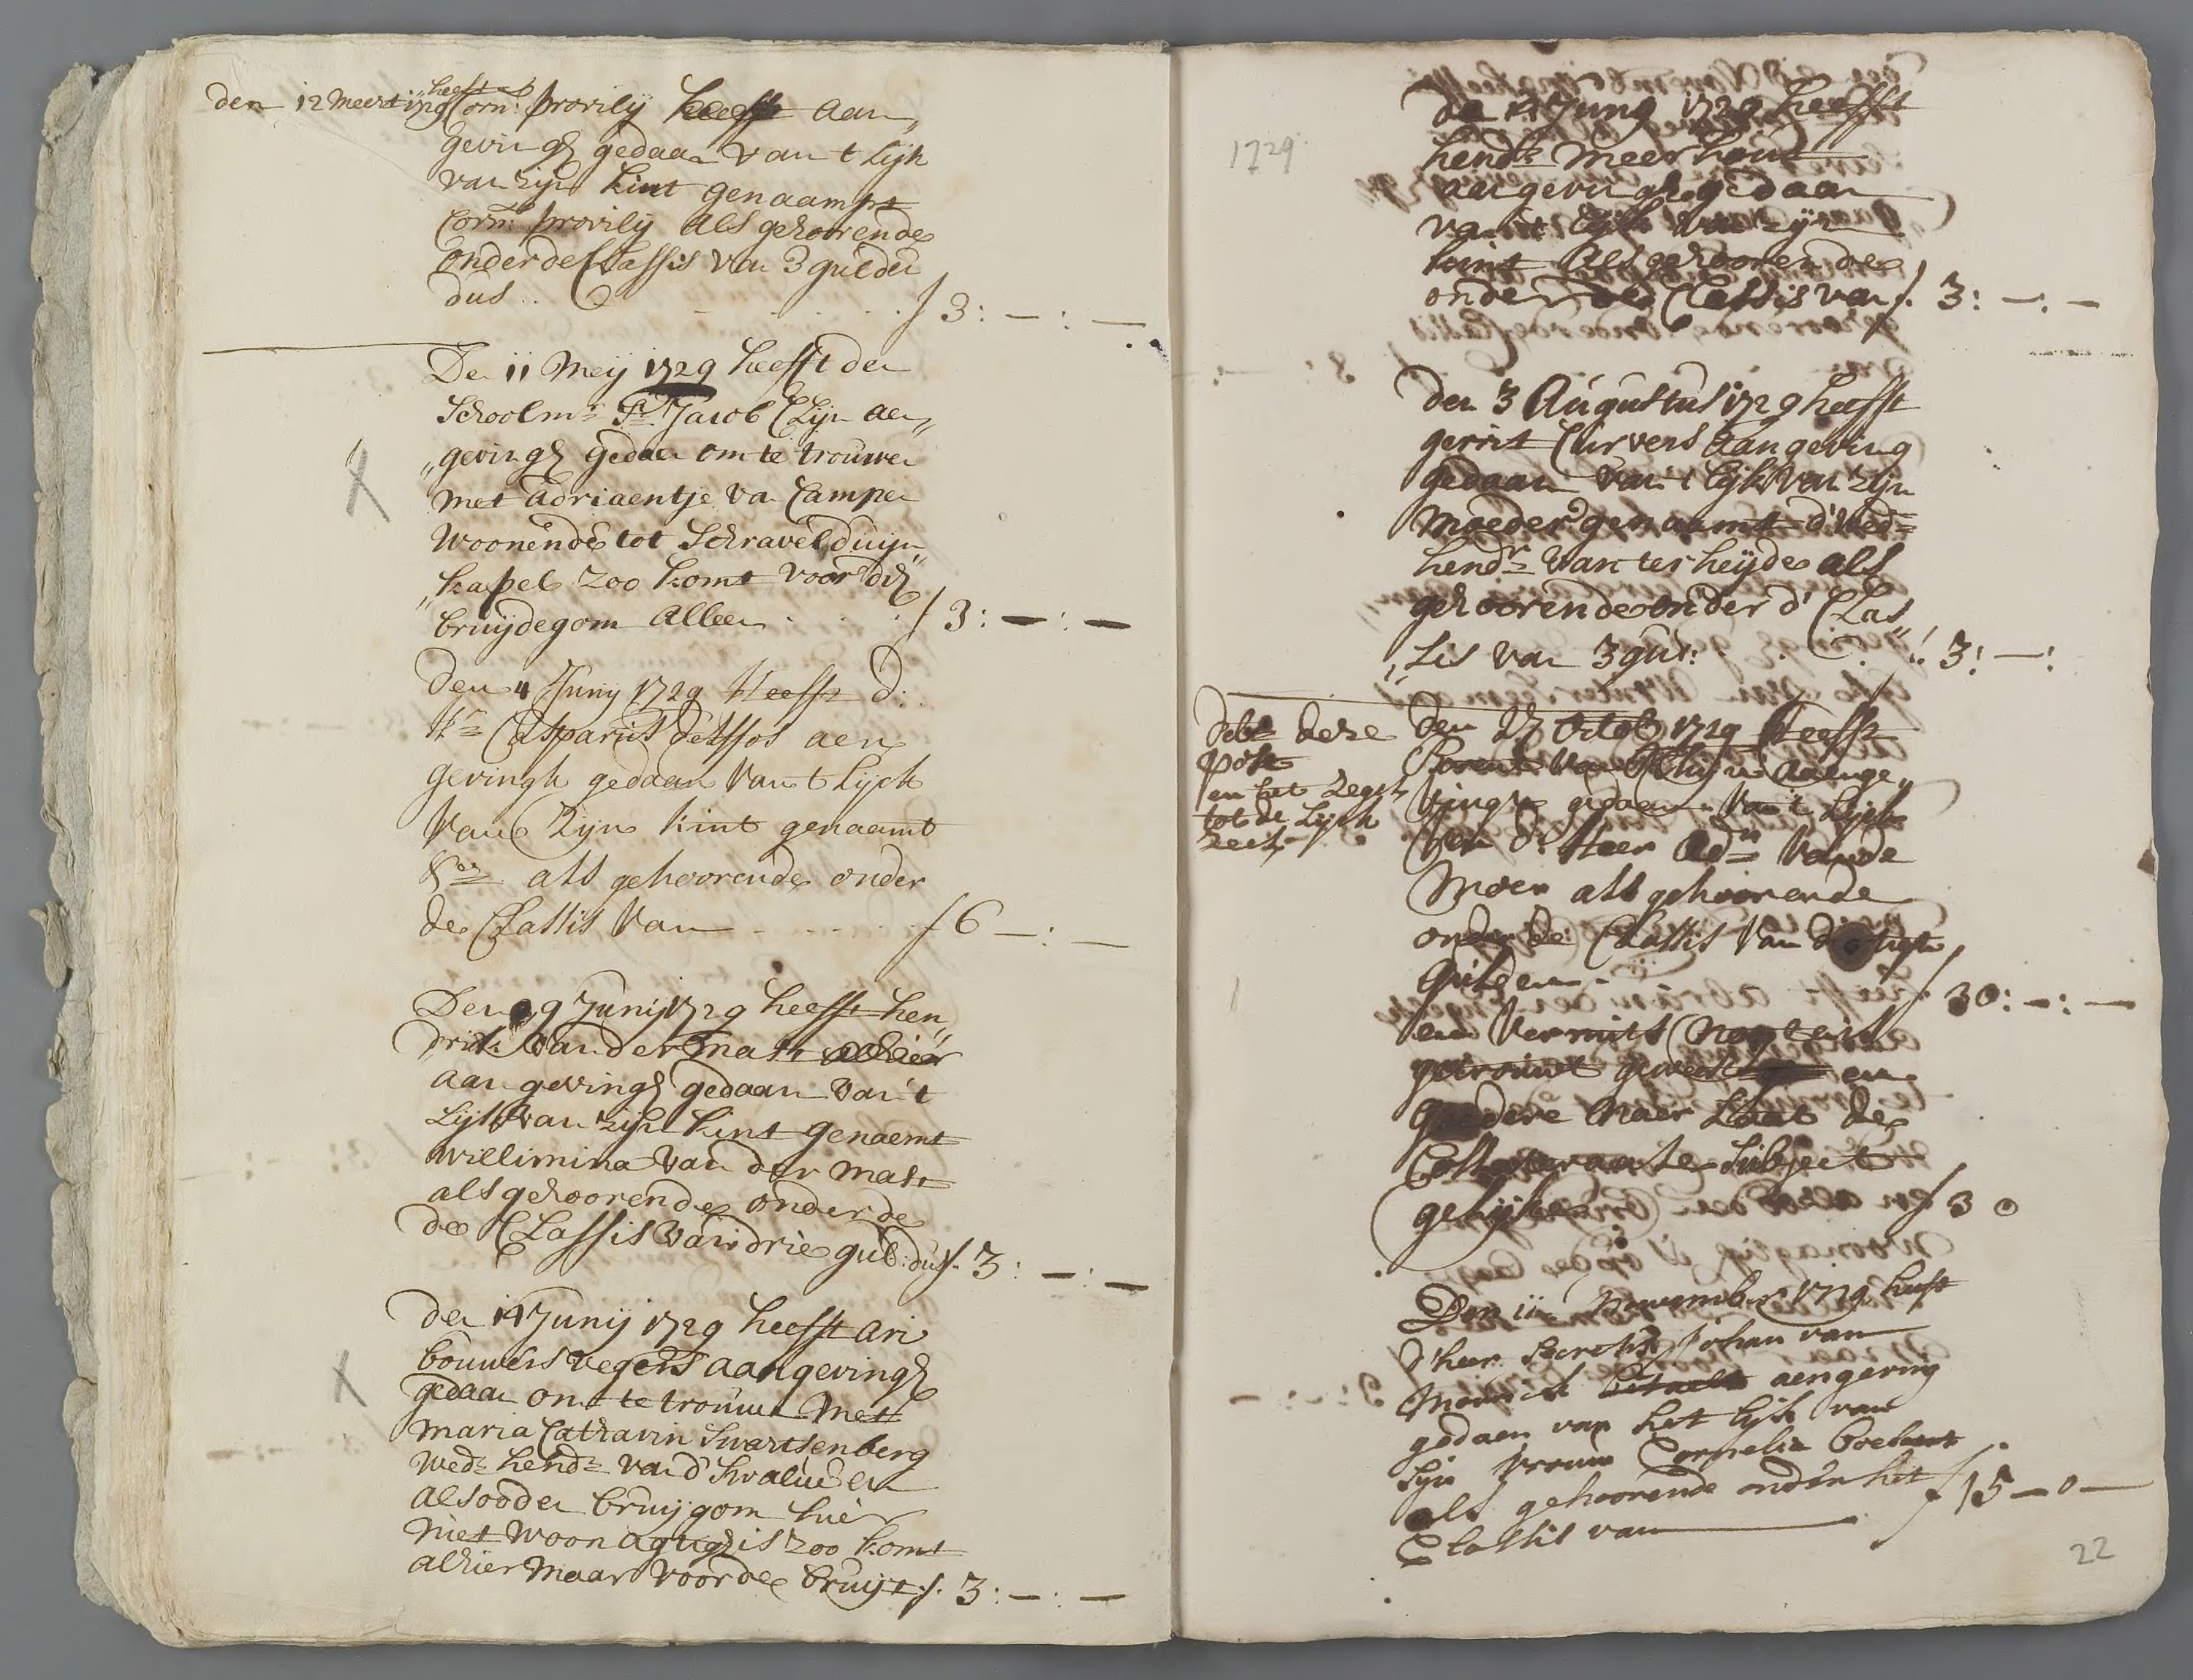 heeft
den 12 Meert 1729 Corn: provilij heefft aan„
gevingh gedaan van t Lijk
van zijn kint genaampt
Corn: provilij als gehoorende
onder de Classis van 3 gulden
dus . . f 3:—:—
Den 11 Meij 1729 heefft den
Schoolmr Sr Jacob Clijn aen„
„gevingh gedaen om te trouwen
met Adriaentje van Campen
woonende tot Schravelduijn„
„kapel zoo komt voor den
bruijdegom alleen . . f 3:—:—
Den 4 Junij 1729 Heefft d:
Hr Casparus
gevingh gedaan van t Lijck
van Zijn kint genaamt
als gehoorende onder
de Classis van . . . . f 6—:—
Den 9 Junij 1729 heefft Hen„
drick van der Mast alhier
aangevingh gedaan van 't
Lijk van zijn kint genaemt
willimina van der Mast
als gehoorende onder de
de Classis van drie gul: dus f 3:—:—
den 14 Junij 1729 heefft Ari
bouwens vegers aangevingh
gedaan om te trouwen Met
Maria Catharin Swartsenberg
wedr hendr van d' Swaluwen
alsoo den bruijgom hier
niet woonagtigh is zoo komt
alhier maar voor de bruijt f 3:—:—
1729
de 14 Juny 1729 heefft
hendr Meerhout
aengevingh gedaan
van t Lijk van zijn
kint als gehoorende
onder de Classis van f. 3:—:—
den 3 Augustus 1729 heefft
gerrit Curvers aangeving
gedaan van t Lijk van zijn
moeder genaamt d' wedr
hendr van ter heijde als
gehoorende onder d' Clas„
„sis van 3 gul: . . 3:—:
debt deze
post
en het zegel
tot de Lijck
den 27 Octob 1729 Heefft
Corent van Rhijn aenge„
vingh gedaan van t Lijck
van d: Heer Adn van de
Moer als gehoorende
onder de Classis van dertigh
gulden . f 30:—:—
en vermits noyteit
getrouwt geweest en
goedere naer Laat de
Collateraale subject
gelijke f 30
Den 11 November 1729 heeft
d'heer Secrets Johan van
Mourick aengeving
gedaen van het Lijk van
sijn vrouw Cornelia boelaert
als gehoorende onder het
Classis van f 15—0—
22